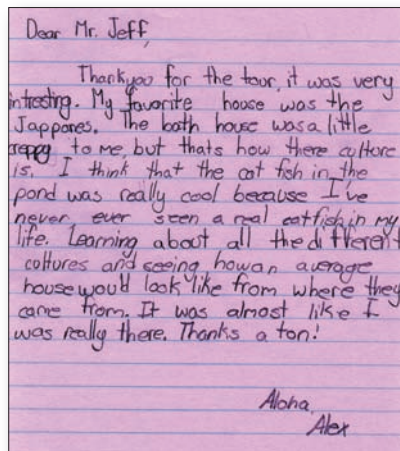 Dear Mr. Jeff,
Thankyou for the tour, it was very
intresting. My favorite house was the
Jappanes. The bath house was a little
creppy to me, but thats how there culture
is. I think that the cat fish in the
pond was really cool because I've
never ever seen a real catfish in my
life. Learning about all the different
coltures and seeing how an average
house would look like from where they
came from. It was almost like I
was really there. Thanks a ton!
Aloha,
Alex